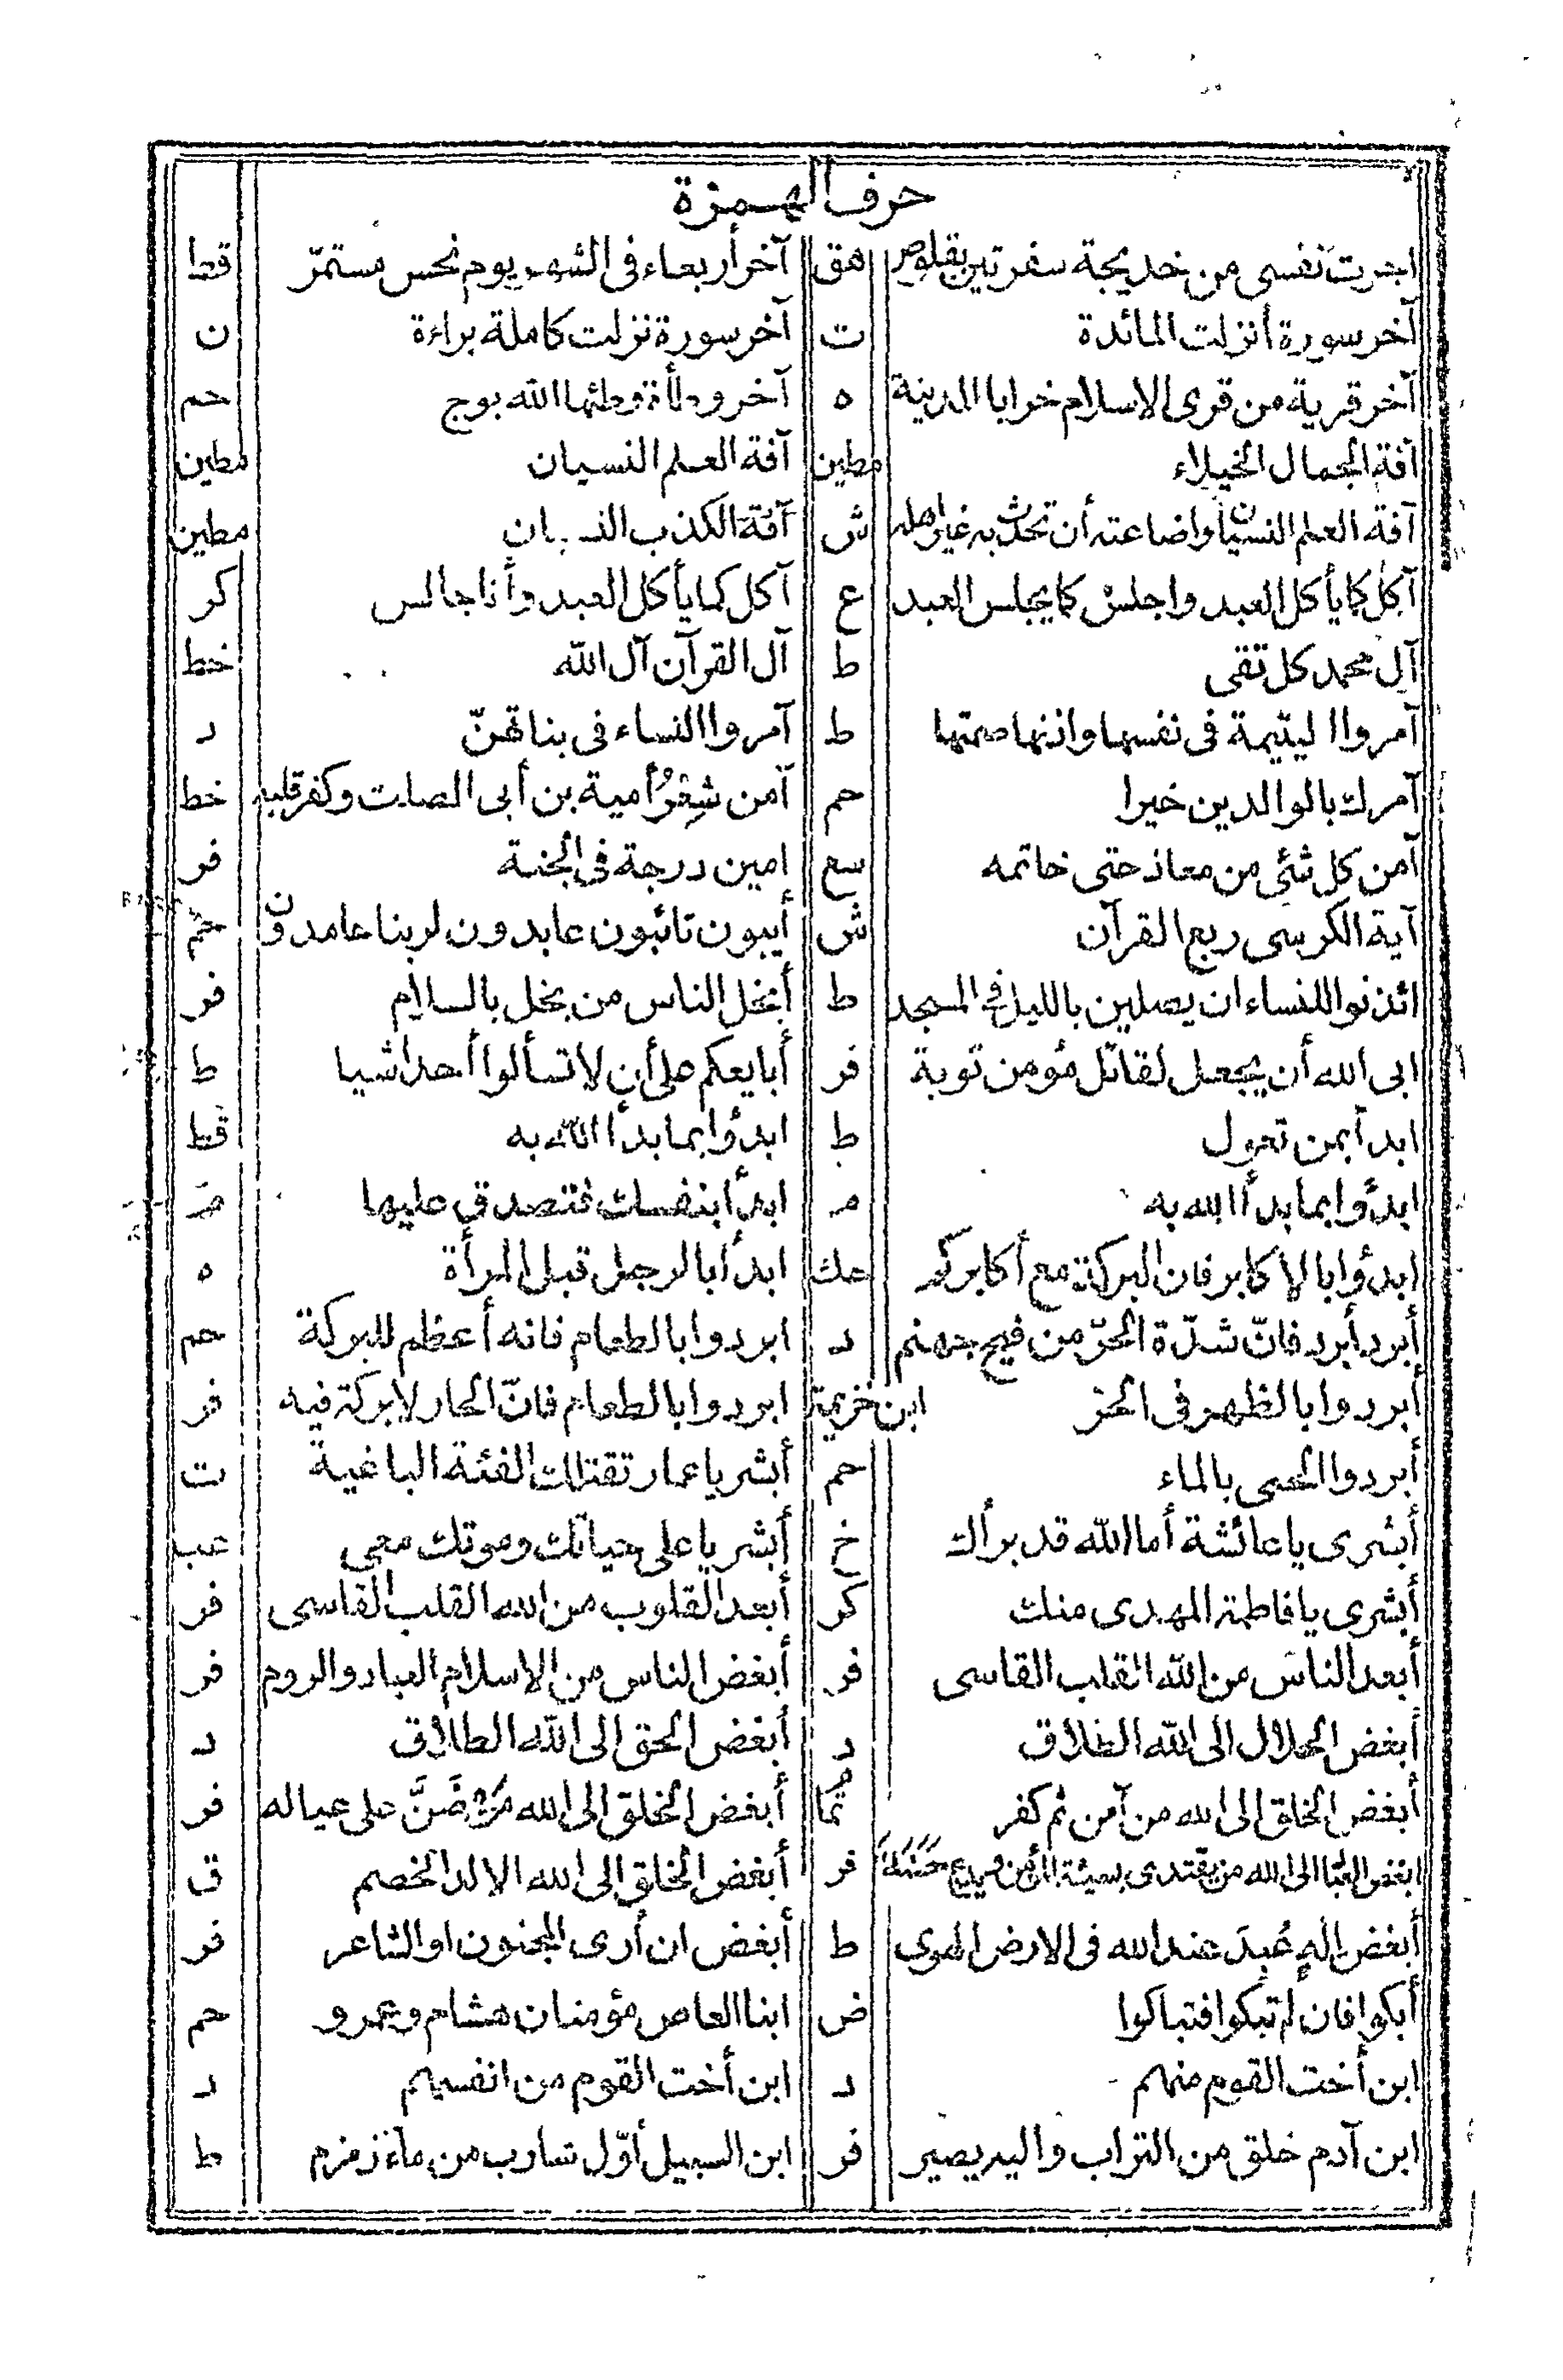 حرف الهمزة
اجرت نفسي من خديجة سفرتين بقلوص هق آخر أربعاء في الشهر يوم نحس مستمرّ قط
آخر سورة أنزلت المائدة ت آخر سورة نزلت كاملة براءة ن
آخر قرية من قرى الاسلام خرابا المدينة ه آخر وطأة وطئها الله بوج حم
آفة الجمال الخيلاء مطين آفة العلم النسيان مطين
آفة العلم النسيان واضاعته أن تحدث به غير اهله ش آفة الكذب النسيان مطين
آكل كما يأكل العبد واجلس كما يجلس العبد ع آكل كما يأكل العبد وأنا جالس كر
آل محمد كل تقى ط آل القرآن آل الله خط
آمروا اليتيمة فى نفسها واذنها صمتها ط آمروا النساء فى بناتهنّ د
آمرك بالوالدين خيرا حم آمن شعرُ أمية بن أبى الصلت وكفر قلبه خط
آمن كل شئ من معاذ حتى خاتمه سع امين درجة فى الجنة فر
آية الكرسى ربع القرآن ش أيبون تائبون عابدون لربنا حامدون حم
ائذنوا للنساء ان يصلين بالليل في المسجد ط أبخل الناس من بخل بالسلام فر
ابى الله أن يجعل لقاتل مؤمن توبة فر أبايعكم على أن لا تسألوا أحدا شيا ط
ابدأ بمن تعول ط ابدؤا بما بدأ الله به قط
ابدؤا بما بدأ الله به م ابدأ بنفسك فتصدق عليها م
ابدؤا بالاكابر فان البركة مع أكابركم حك ابدأ بالرجل قبل المرأة ه
أبرد أبرد فانّ شدّة الحرّ من فيح جهنم د ابردوا بالطعام فانه أعظم للبركة حم
أبردوا بالظهر فى الحر ابن خزيمة ابردوا بالطعام فانّ الحار لا بركة فيه فر
أبردوا الحمى بالماء حم أبشر يا عمار تقتلك الفئة الباغية ت
أبشرى يا عائشة أما الله قد برأك خ أبشر يا على حياتك وموتك معى عب
أبشرى يا فاطمة المهدى منك كر أبعد القلوب من الله القلب القاسى فر
أبعد الناس من الله القلب القاسى فر أبغض الناس من الاسلام العباد والروم فر
أبغض الحلال الى الله الطلاق د أبغض الحق الى الله الطلاق د
أبغض الخلق الى الله من آمن ثم كفر تمام أبغض الخلق الى الله من ضَنَّ على عياله فر
ابغض العباد الى الله من يقتدى بسيئة المؤمن ويدع حَسَنَتَهُ فر أبغض الخلق الى الله الالد الخصم ق
أبغض إلهٍ عُبِدَ عند الله فى الارض الهوى ط أبغض ان أرى المجنون او الشاعر فر
أبكوا فان لم تبكوا فتباكوا ض ابنا العاص مؤمنان هشام وعمرو حم
ابن أخت القوم منهم د ابن أخت القوم من انفسهم د
ابن آدم خلق من التراب واليه يصير فر ابن السبيل أوّل شارب من ماء زمزم ط